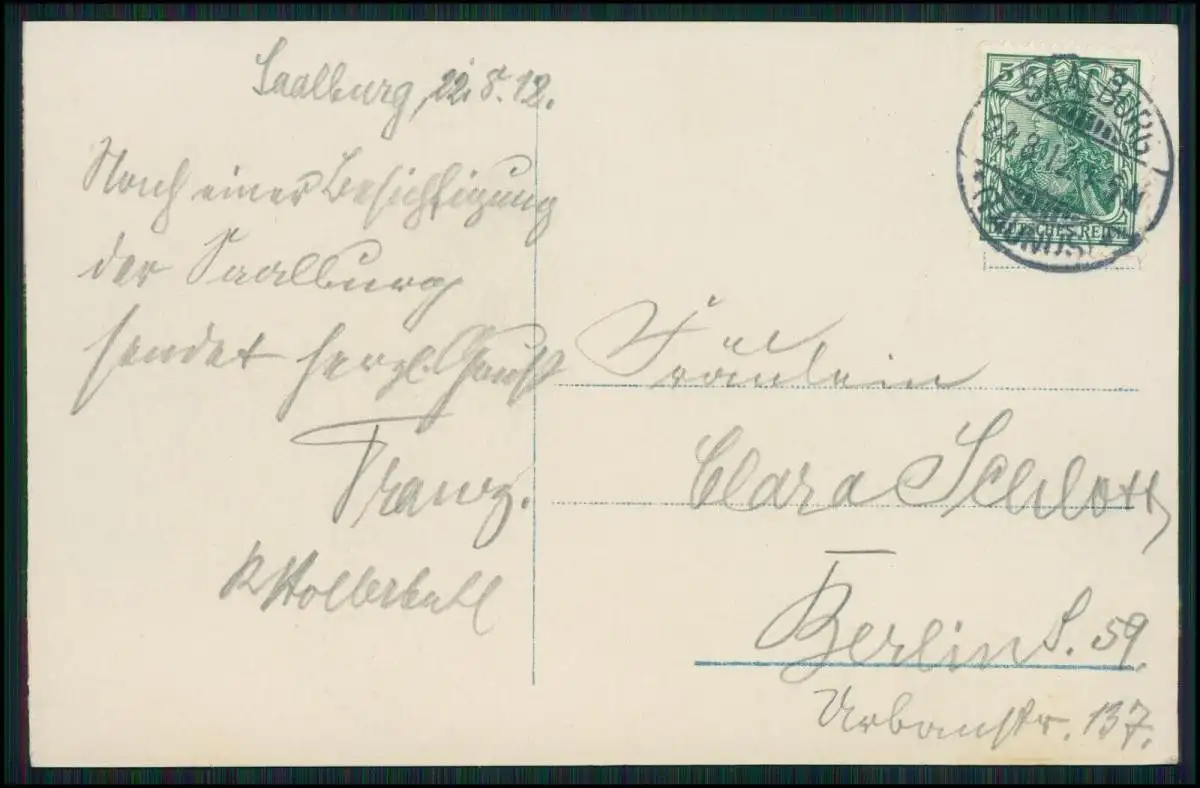 Saalburg, 22.8.12.
Nach einer Besichtigung
der Saalburg
sendet herzl. Gruß
Franz.
Fräulein
Clara Schlott
Berlin S. 59.
Urbanstr. 137.
5 5
DEUTSCHES REICH
SAALBURG
22.8.12
(TAUNUS)